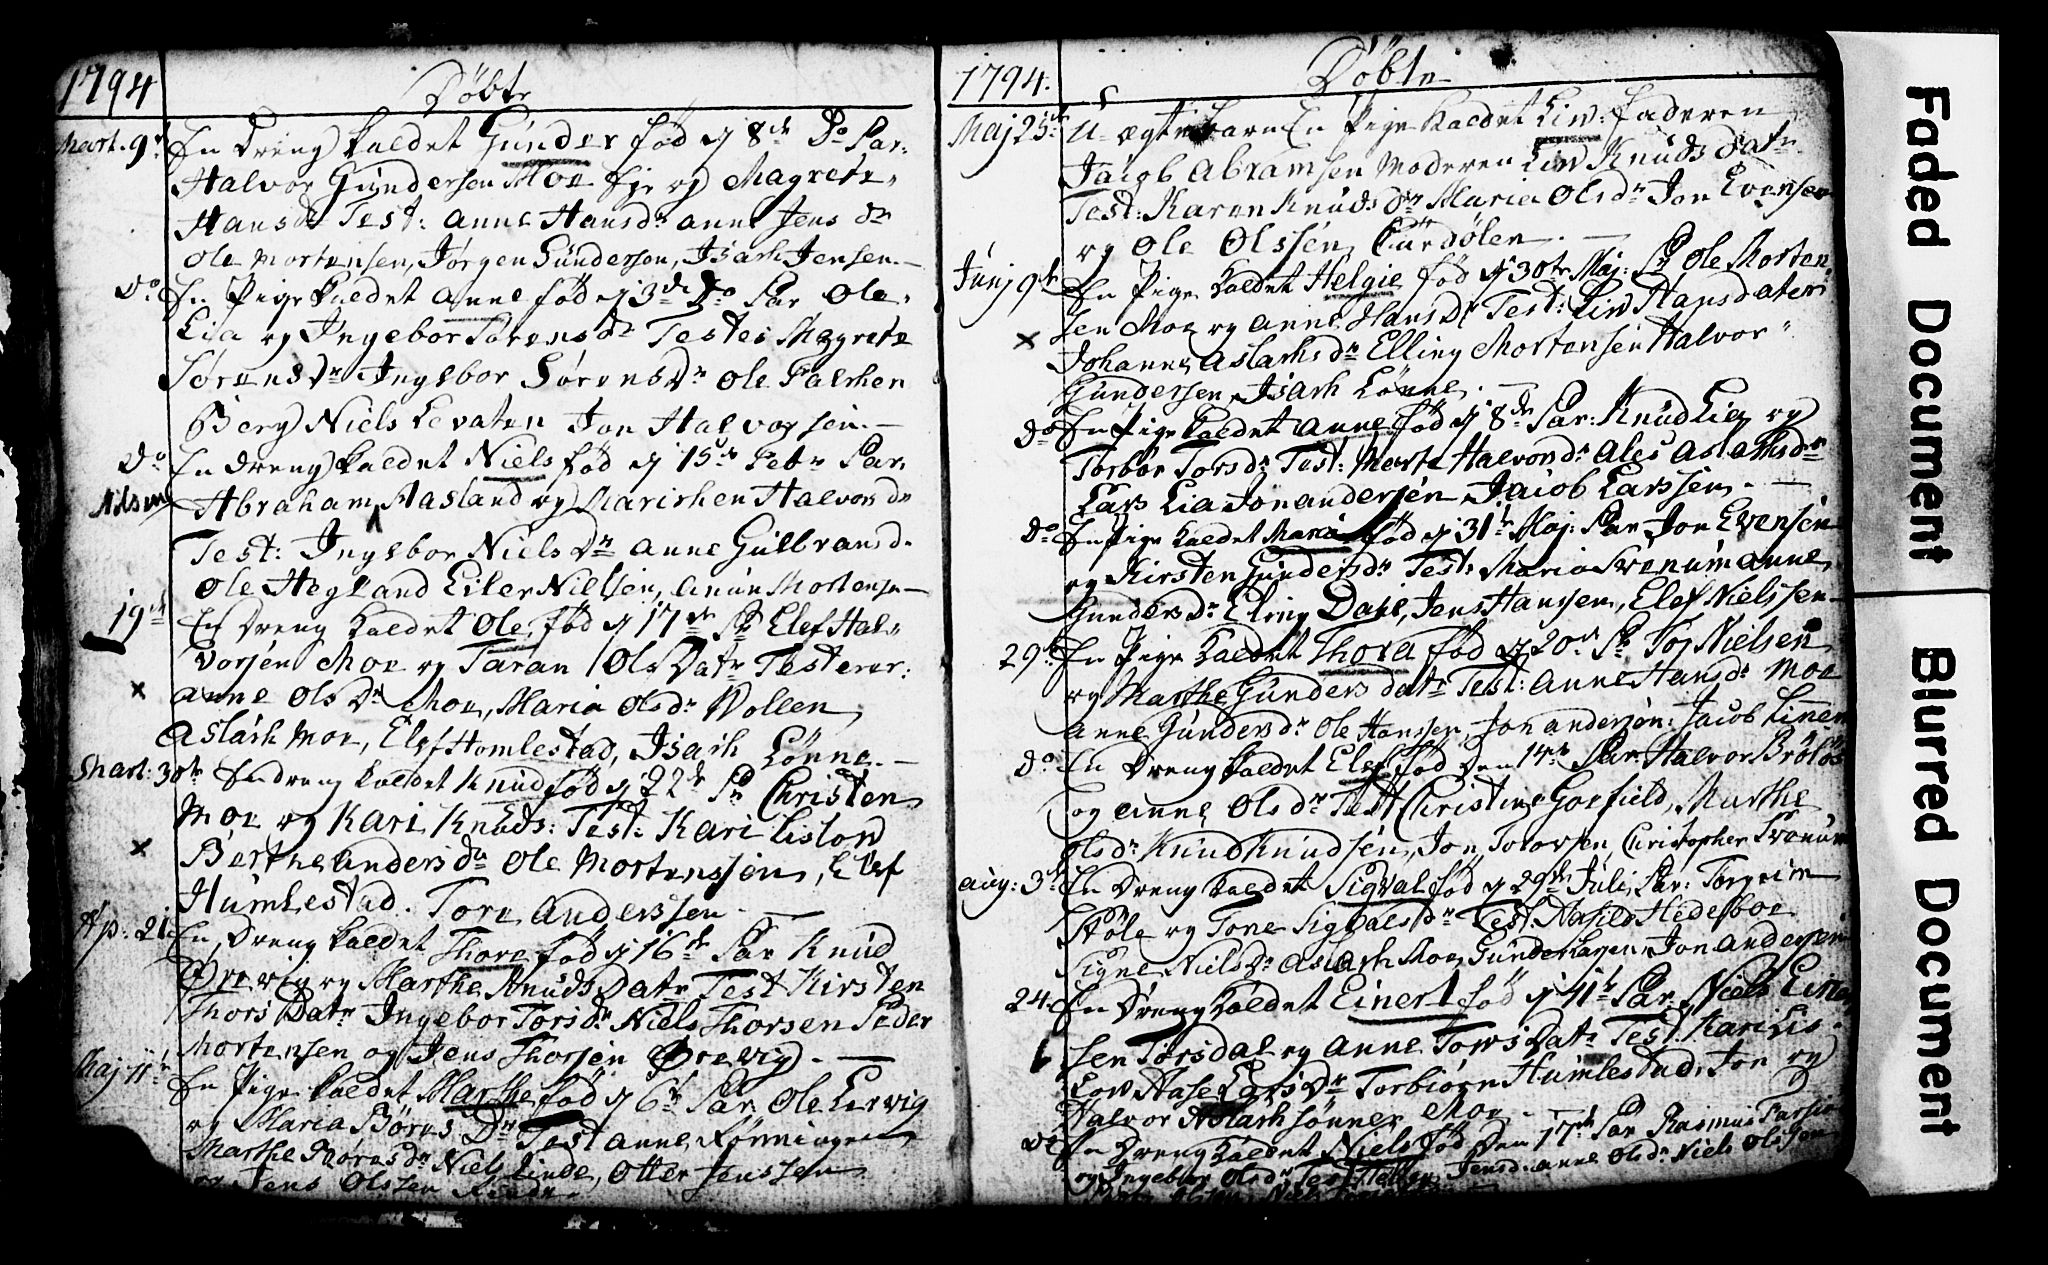 1794
Döbte
Mart. 9de En Dreng kaldet Gunder fød d 8de Do Par:
Halvor Gundersen Moe Eje og Magrete
Hansdr Test: Anne Hansdr Anne Jens dr
Ole Mortensen, Jørgen Gundersen, Isach Jensen.
Do En Pige kaldet Anne fød d 3de Do Par Ole
Lia og Ingebor Sørensdr Testes Magrete
Sørensdr Ingebor Sørensdr Ole Falchen
Berg Niels Levaten Jon Halvorsen.
Do En dreng kaldet Niels fød d 15de Febr Par.
Nilsen Abraham Aasland og Marichen Halvorsdr
Test: Ingebor Nielsdr Anne Gulbransd.
Ole Hegland Eiler Nielsen, Anun Mortensen
19de En Dreng kaldet Ole fød d 17de Pr Elef Hal
vorsen Moe og Taran Olsdatr Testerer:
x Anne Olsdr Moe, Maria Olsdr Vollen
Aslach Moe, Elef Homlestad, Isach Lönne.
Mart: 30te En dreng kaldet Knud fød d 22de Pr Christen
Moe og Kari Knuds: Test: Kari Lislow
x Berthe Anders dr Ole Mortenssen, Elef
Humlestad. Tore Anderssen.
Ap: 21. En Dreng kaldet Thore fød d 16de Par Knud
Ørevig og Marthe Knuds Datr Test Kirsten
Thors Datr Ingebor Torsdr Niels Thorsen Peder
Mortensen og Jens Thorsen Ørevig.
Maj 11te En Pige kaldet Marthe fød d 6te Par Ole Lervig
og Maria Böres Dr Test Anne Rönningen
Marthe Böresdr Niels Linde, Otter Jenssen
og Jens Olssen
1794.
Döbte
Maj 25de U-ægte Barn En Pige kaldet Liv: Faderen
Jacob Abramsen Moderen Liv Knudsdatr
Test: Karen Knudsdr Maria Olsdr Jon Evensen
og Ole Olssen
Junj 9de En Pige kaldet Helgie fød d 30te Maj: Pr Ole Morten
x sen Moe og Anne Hansdr Test: Liv Hansdater
Johanne Aslachsdr Elling Mortensen Halvor
Gundersen, Isach Lönne.
Do En Pige kaldet Anne fød d 8de Par: Knud Lia og
Torbor Torsdr Test: Marte Halvorsdr Ales Aslachsdr
Lars Lia Jon Andersen, Jacob Larssen.
Do En Pige kaldet Maria fød d 31te Maj: Par Jon Evensen
og Kirsten Gundersdr Test: Maria Svenum Anne
Gundersdr Eling Dahl, Jens Hanssen, Elef Nielssen
29de En Pige kaldet Thora fød d 20de Pr Tor Nielsen
og Marthe Gunders datr Test: Anne Hansdr Moe
Anne Gundersdr Ole Hanssen, Jon Andersøn: Jacob Linnen
Do En Dreng kaldet Elef fød den 14de Par Halvor
og Anne Olsdr Test Christine Gorfield, Marthe
Olsdr Knud Knudsen, Jon Torersen, Christopher
Aug: 3de En Dreng kaldet Sigval fød d 29de Juli, Par: Torgrim
Støle og Tone Sigvalsdr Test: Aashild Hedeboe
Signe Nielsdr Aslach Moe, Gunder Hagen, Jon Andersen
24. En Dreng kaldet Einert fød d 11te Par Niels Einer
sen Torsdal og Anne Towsdatr Test: Kari Lis
low Aase Larsdr Torbiørn Humlestad, Jon og
Halvor Aslach sønner Moe.
Do En Dreng kaldet Niels fød den 17de Par Rasmus
og Ingebor Olsdr Test Jensd. Anne Olsdr Niels Olssen
Faded Document
Blurred Document